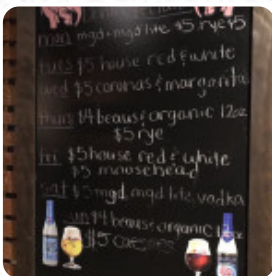 mon mgd + mgd lite $5. rye $5
tues $5 house red & white
wed $5 coronas & margarita
thurs $4 beaus & organic 12oz
$5 rye
fri $5 house red & white
$5 moosehead
sat $5 mgd, mgd lite, vodka
un $4 beaus & organic 12oz
$5